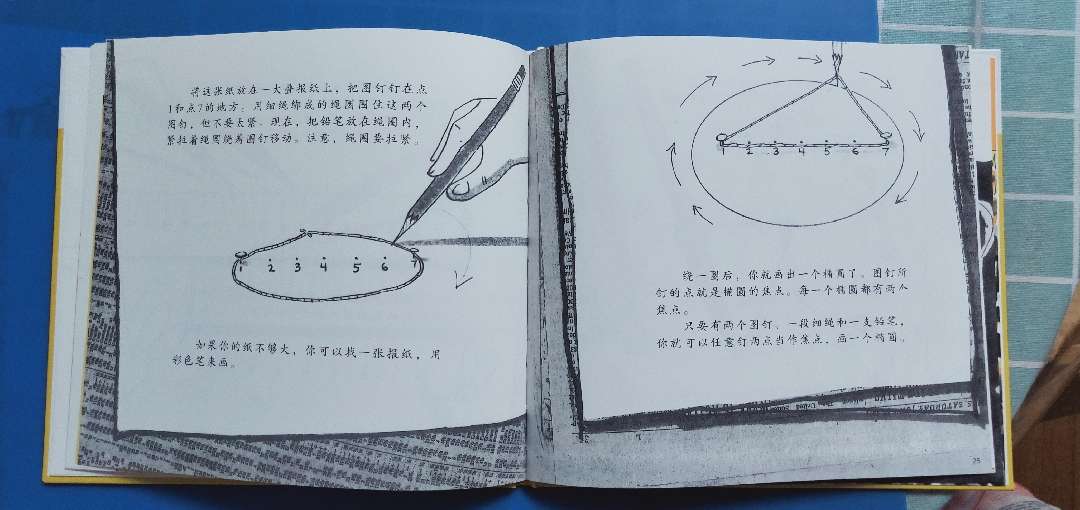 将这张纸放在一大叠报纸上，把图钉钉在点
1和点7的地方。用细绳绑成的绳圈围住这两个
图钉，但不要太紧。现在，把铅笔放在绳圈内，
紧拉着绳圈绕着图钉移动。注意，绳圈要拉紧。
1 2 3 4 5 6 7
如果你的纸不够大，你可以找一张报纸，用
彩色笔来画。
1 2 3 4 5 6 7
绕一圈后，你就画出一个椭圆了。图钉所
钉的点就是椭圆的焦点。每一个椭圆都有两个
焦点。
只要有两个图钉、一段细绳和一支铅笔，
你就可以任意钉两点当作焦点，画一个椭圆。
25